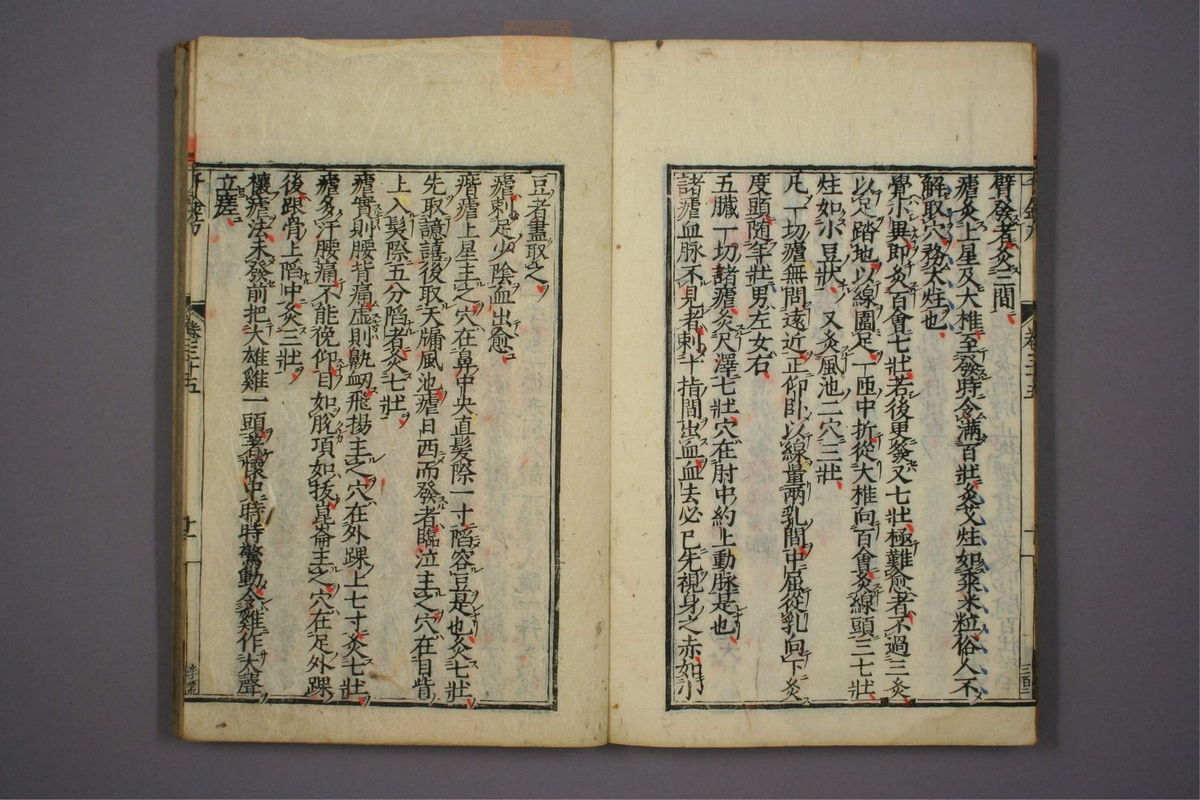 臂發者灸三間
瘧灸上星及大椎至發時令滿百壯灸艾炷如黍米粒俗人不
解取穴務大炷也
覺小異即灸百會七壯若後更發又七壯極難愈者不過三灸
以足踏地以線圍足一匝中折從大椎向百會灸線頭三七壯
炷如小豆狀 又灸風池二穴三壯
凡一切瘧無問遠近正仰卧以線量兩乳間中屈從乳向下灸
度頭随年壯男左女右
五臓一切諸瘧灸尺澤七壯穴在肘中約上動脉是也
諸瘧血脉不見者刺十指間出血血去必已先視身之赤如小
豆者盡取之
瘧刺足少陰血出愈
㾬瘧上星主之穴在鼻中央直髪際一寸陷容豆是也灸七壯
先取譩譆後取天牖風池瘧日西而發者臨泣主之穴在目眥
上入髪際五分陷者灸七壯
瘧實則腰背痛虚則鼽衂飛揚主之穴在外踝上七寸灸七壯
瘧多汗腰痛不能俛仰目如脫項如拔崑崙主之穴在足外踝
後跟骨上陷中灸三壯
禳瘧法未發前抱大雄雞一頭著懷中時時驚動令雞作大聲
立瘥
卷三十五